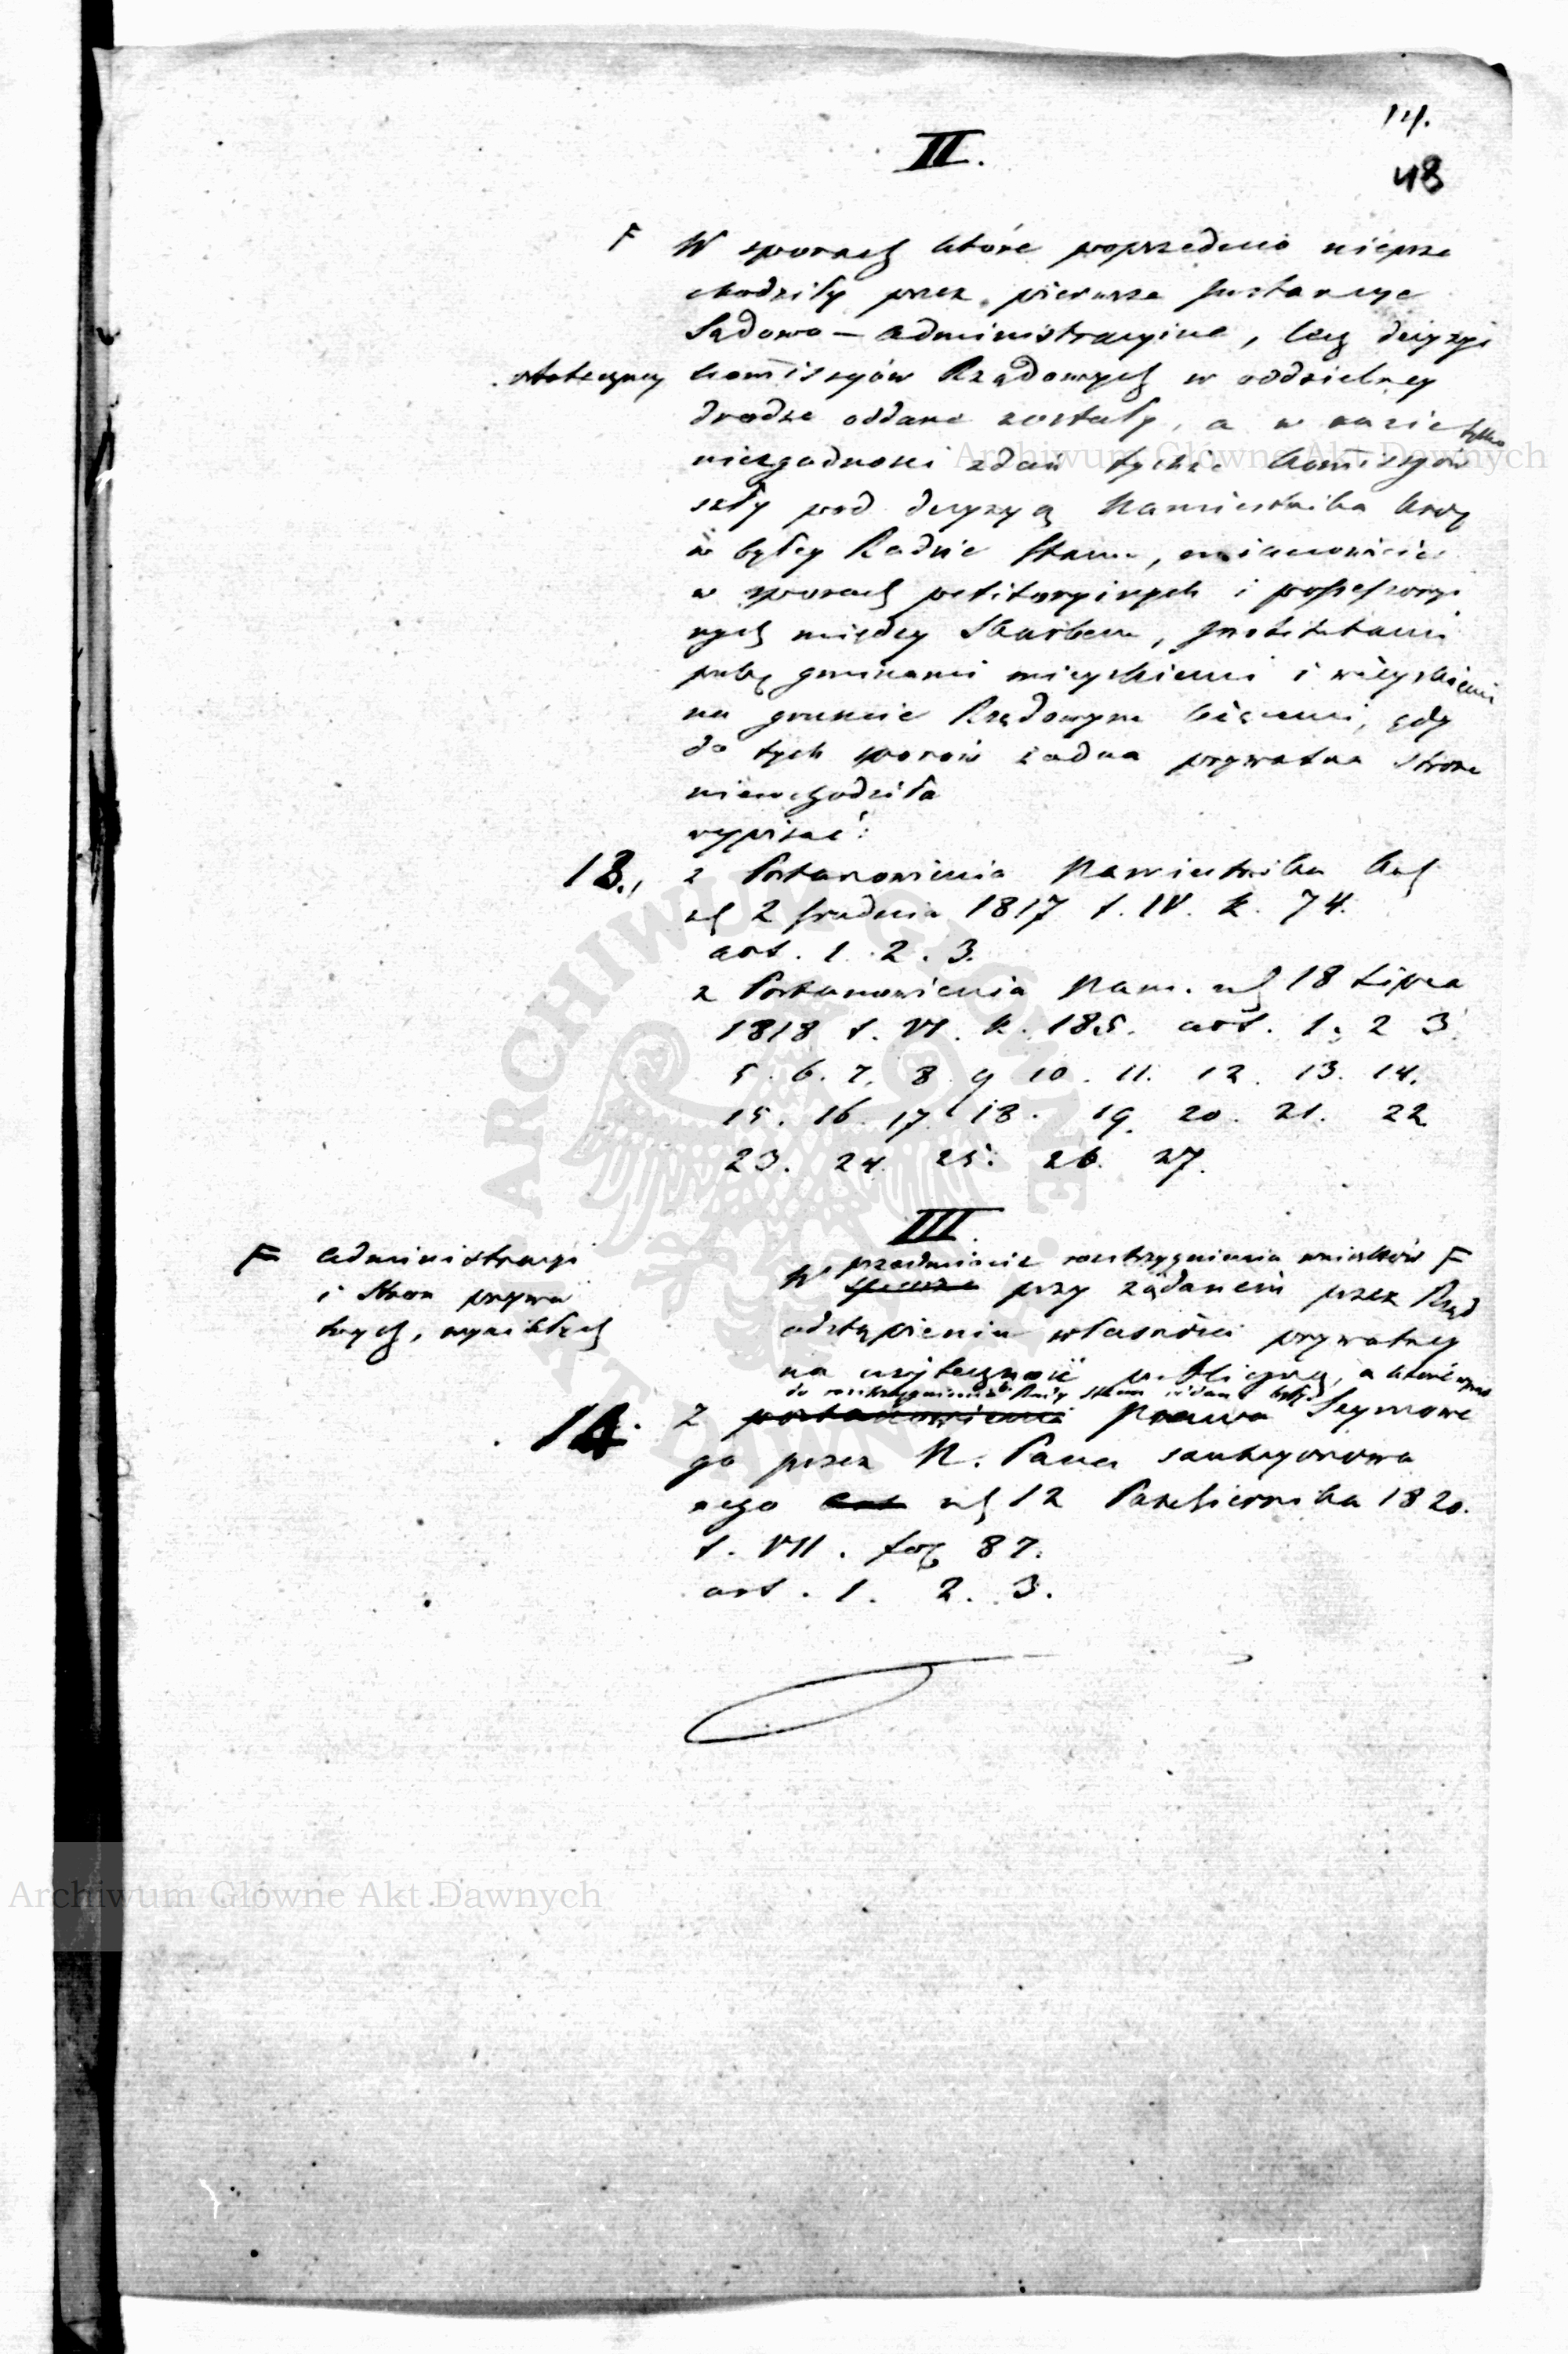 14.
48
II.
F W sporach które poprzednio nieprze
chodziły przez pierwsze Instancye
Sądowo – administracyine, lecz decyzyi
ostateczney kommissyów Rządowych w oddzielney
drodze oddane zostały, a w razie tylko
niezgodności zdań tychże kommissyów
szły pod decyzyą Namiestnika Król
w byłey Radzie Stanu, mianowicie
w sporach petitoryinych i possessoryi
nych między Skarbem, Instytutami
publ gminami mieyskiemi i wieyskiemi
na gruncie Rządowym będącemi, gdy
do tych sporów żadna prywatna strona
niewchodziła
wypisać:
13., z Postanowienia Namiestnika Król
z d 2 Grudnia 1817 t. IV. k. 74.
art. 1. 2. 3.
z Postanowienia Nam. z d 18 Lipca
1818 t. VI. k. 185. art. 1. 2 3.
5. 6. 7. 8. 9 10. 11. 12. 13. 14.
15. 16. 17. 18. 19. 20. 21. 22
23. 24. 25. 26. 27.
III.
F administracyi
i Stron prywa
tnych, wynikłych
przedmiocie rozstrzygnienia wniosków F
W sporze przy żądaniem przez Rząd
odstąpieniu własności prywatney
na użyteczność publiczną, a które
do rozstrzygnienia Rady Stanu oddane były
14. Z postanowienia Prawa Seymowe
go przez N. Pana sankcyonowa
nego art z d 12 Października 1820.
t. VII. fol 87.
art. 1. 2. 3.
Archiwum Główne Akt Dawnych
Archiwum Główne Akt Dawnych
ARCHIWUM GŁÓWNE AKT DAWNYCH